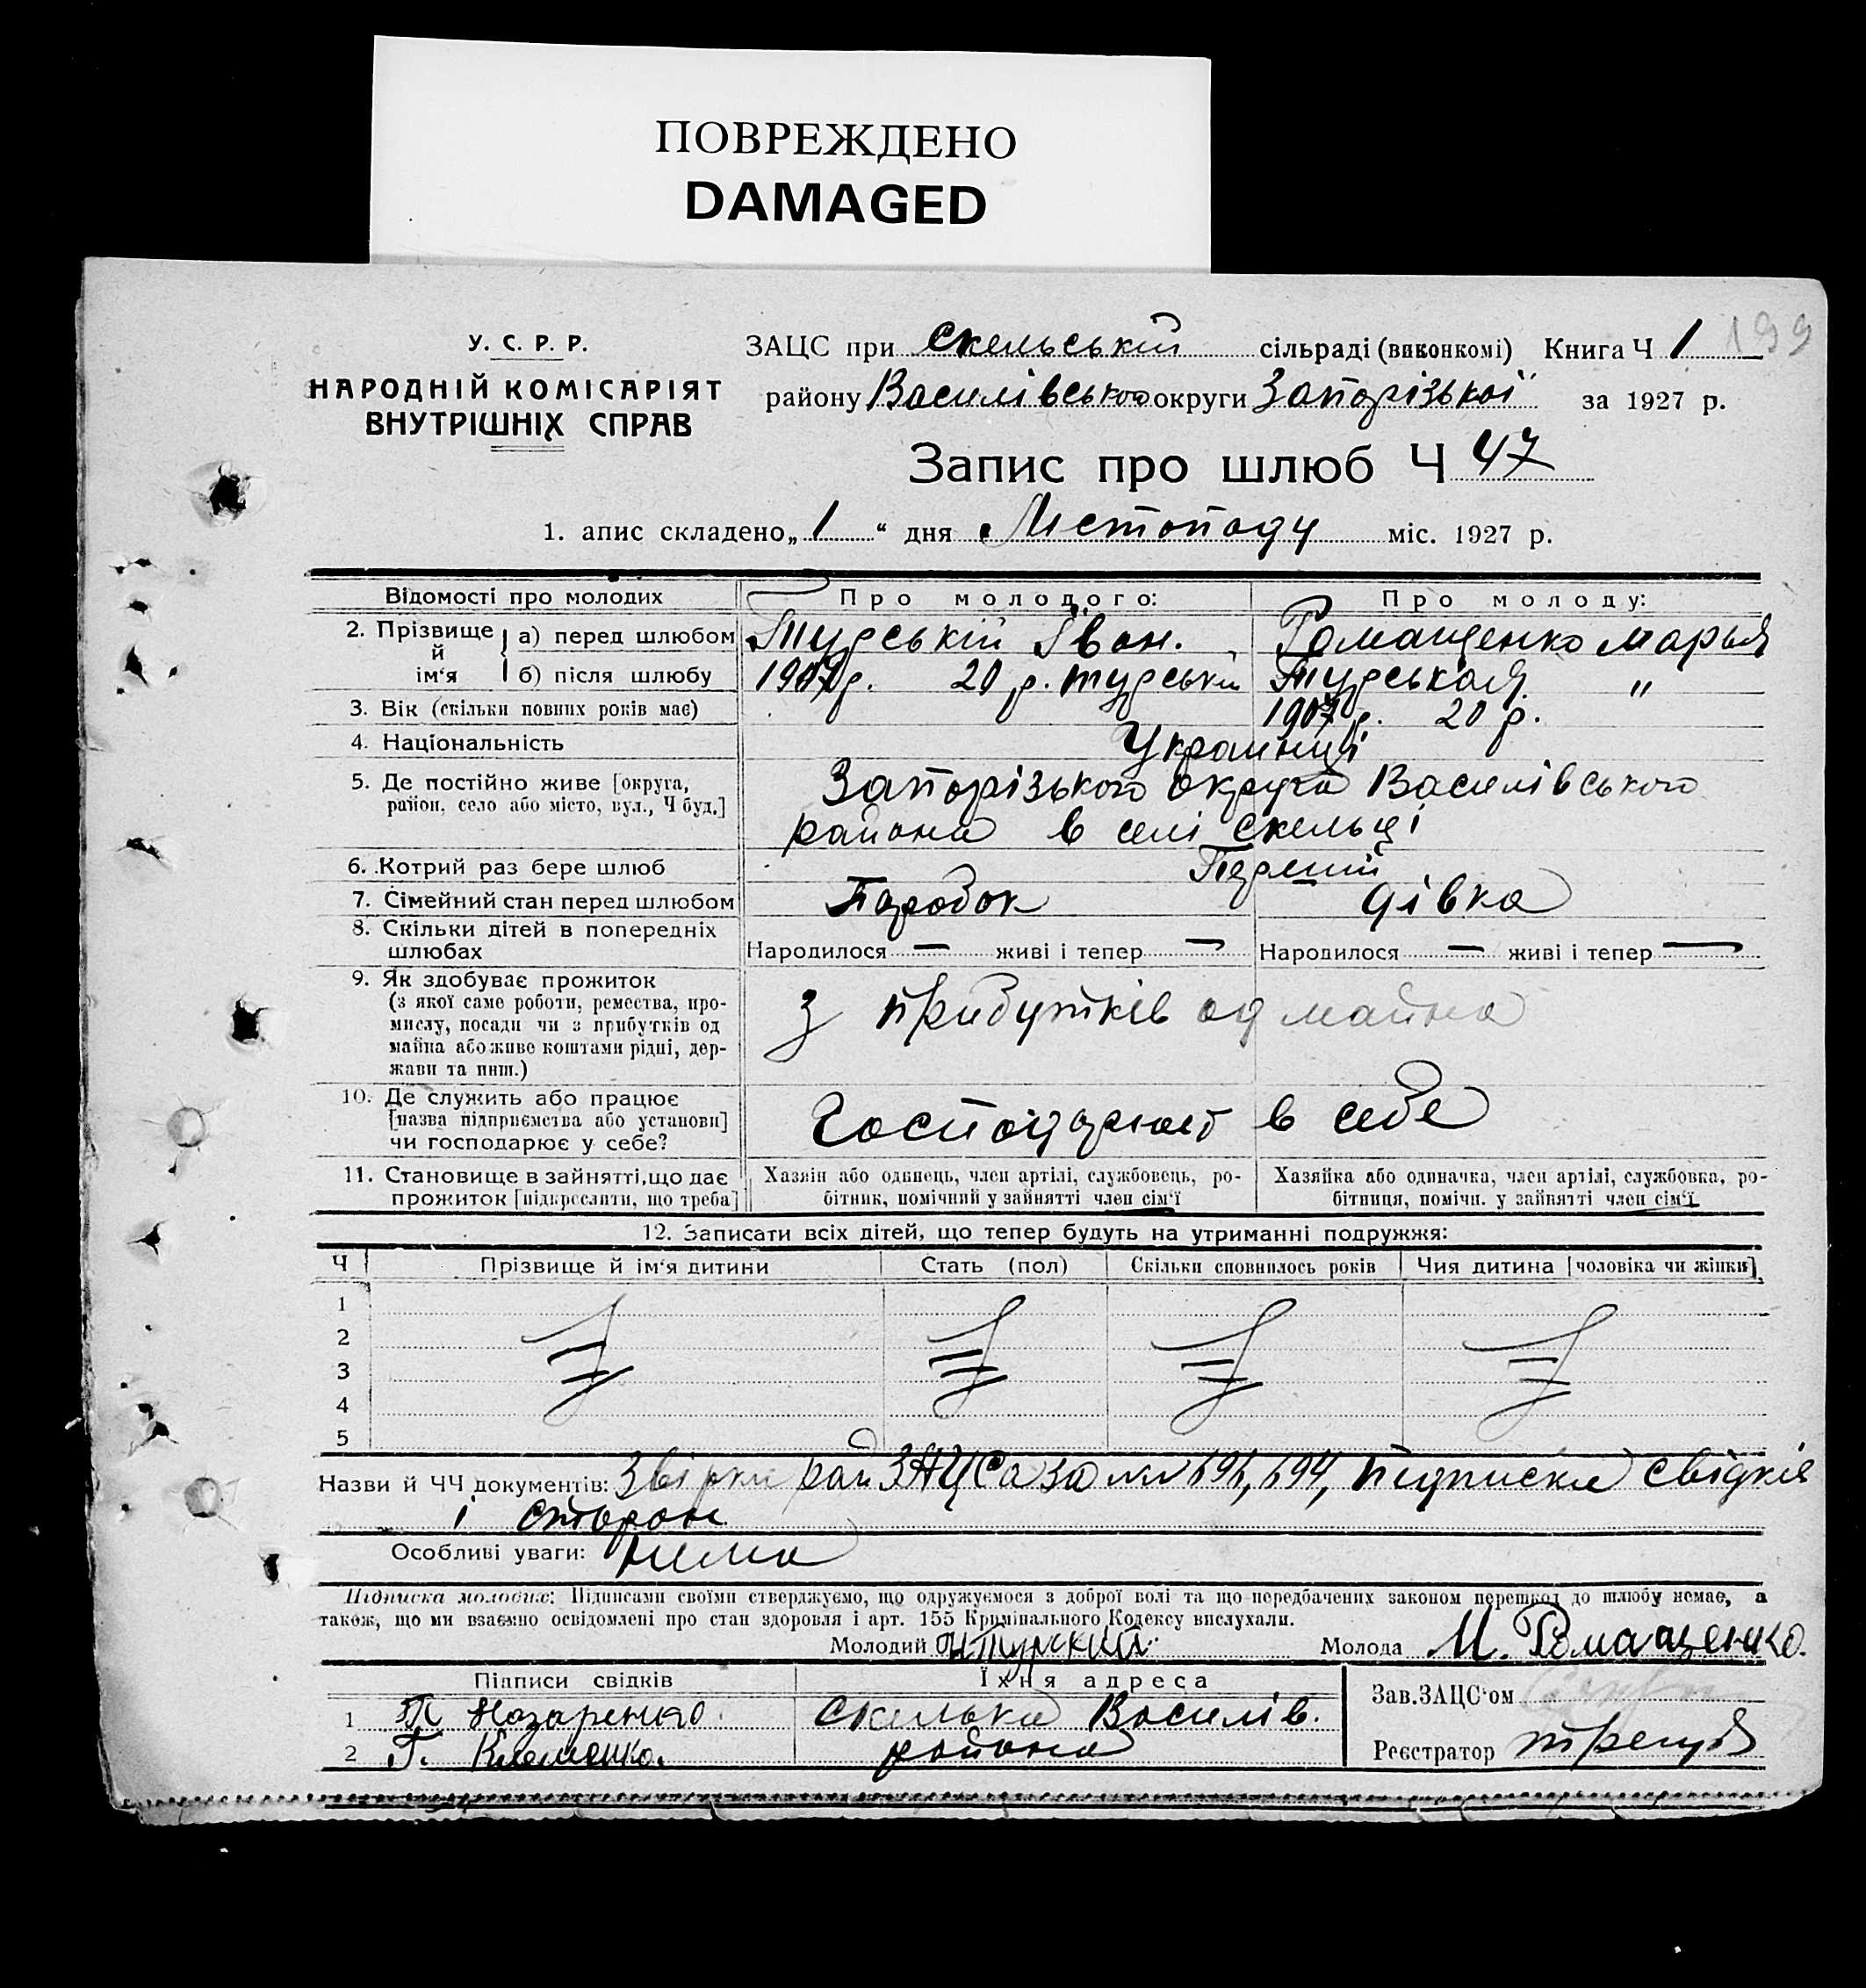 ПОВРЕЖДЕНО
DAMAGED
У. С. Р. Р.
НАРОДНІЙ КОМІСАРІЯТ
ВНУТРІШНІХ СПРАВ
ЗАЦС при Скельській сільраді (виконкомі) Книга Ч 1 199
району Василівського округи Запорізької за 1927 р.
Запис про шлюб Ч 47
1. апис складено „1“ дня Лістопаду міс. 1927 р.
Відомості про молодих Про молодого: Про молоду:
2. Прізвище й ім‘я а) перед шлюбом Турській Іван. Ромащенко Марья
б) після шлюбу 1907 р. 20 р. Турській Турськая "
3. Вік (скільки повних років має) 1907 р. 20 р.
4. Національність Украинці
5. Де постійно живе [округа, район, село або місто, вул., Ч буд.] Запорізького округа Василівського
района в селі Скельці
6. Котрий раз бере шлюб Перший
7. Сімейний стан перед шлюбом Паробок дівка
8. Скільки дітей в попередніх шлюбах Народилося — живі і тепер — Народилося — живі і тепер —
9. Як здобуває прожиток
(з якої саме роботи, ремества, про-
мислу, посади чи з прибутків од
майна або живе коштами рідні, дер-
жави та инш.)
з прибутків од майна
10. Де служить або працює
[назва підприємства або установи]
чи господарює у себе?
Господарюєт в себе
11. Становище в зайнятті, що дає
прожиток [підкреслити, що треба]
Хазяін або одинець, член артілі, службовець, ро-
бітник, помічний у зайнятті член сім‘ї
Хазяйка або одиначка, член артілі, службовка, ро-
бітниця, помічн. у зайнятті член сім‘ї
12. Записати всіх дітей, що тепер будуть на утриманні подружжя:
Ч Прізвище й ім‘я дитини Стать (пол) Скільки сповнилось років Чия дитина [чоловіка чи жінки]
1
2
3
4
5
Назви й ЧЧ документів: Звірки рай ЗАЦСа за підписки свідків
і сторон
Особливі уваги: Нема
Підписка молодих: Підписами своїми стверджуємо, що одружуємося з доброї волі та що передбачених законом перешкод до шлюбу немає, а
також, що ми взаємно освідомлені про стан здоровля і арт. 155 Крімінального Кодексу вислухали.
Молодий И Турский Молода М. Ромащенко.
Підписи свідків Їхня адреса
1 Назаренко Скелька Василів.
2 Г. Клеменко. района
Зав. ЗАЦС‘ом
Реєстратор